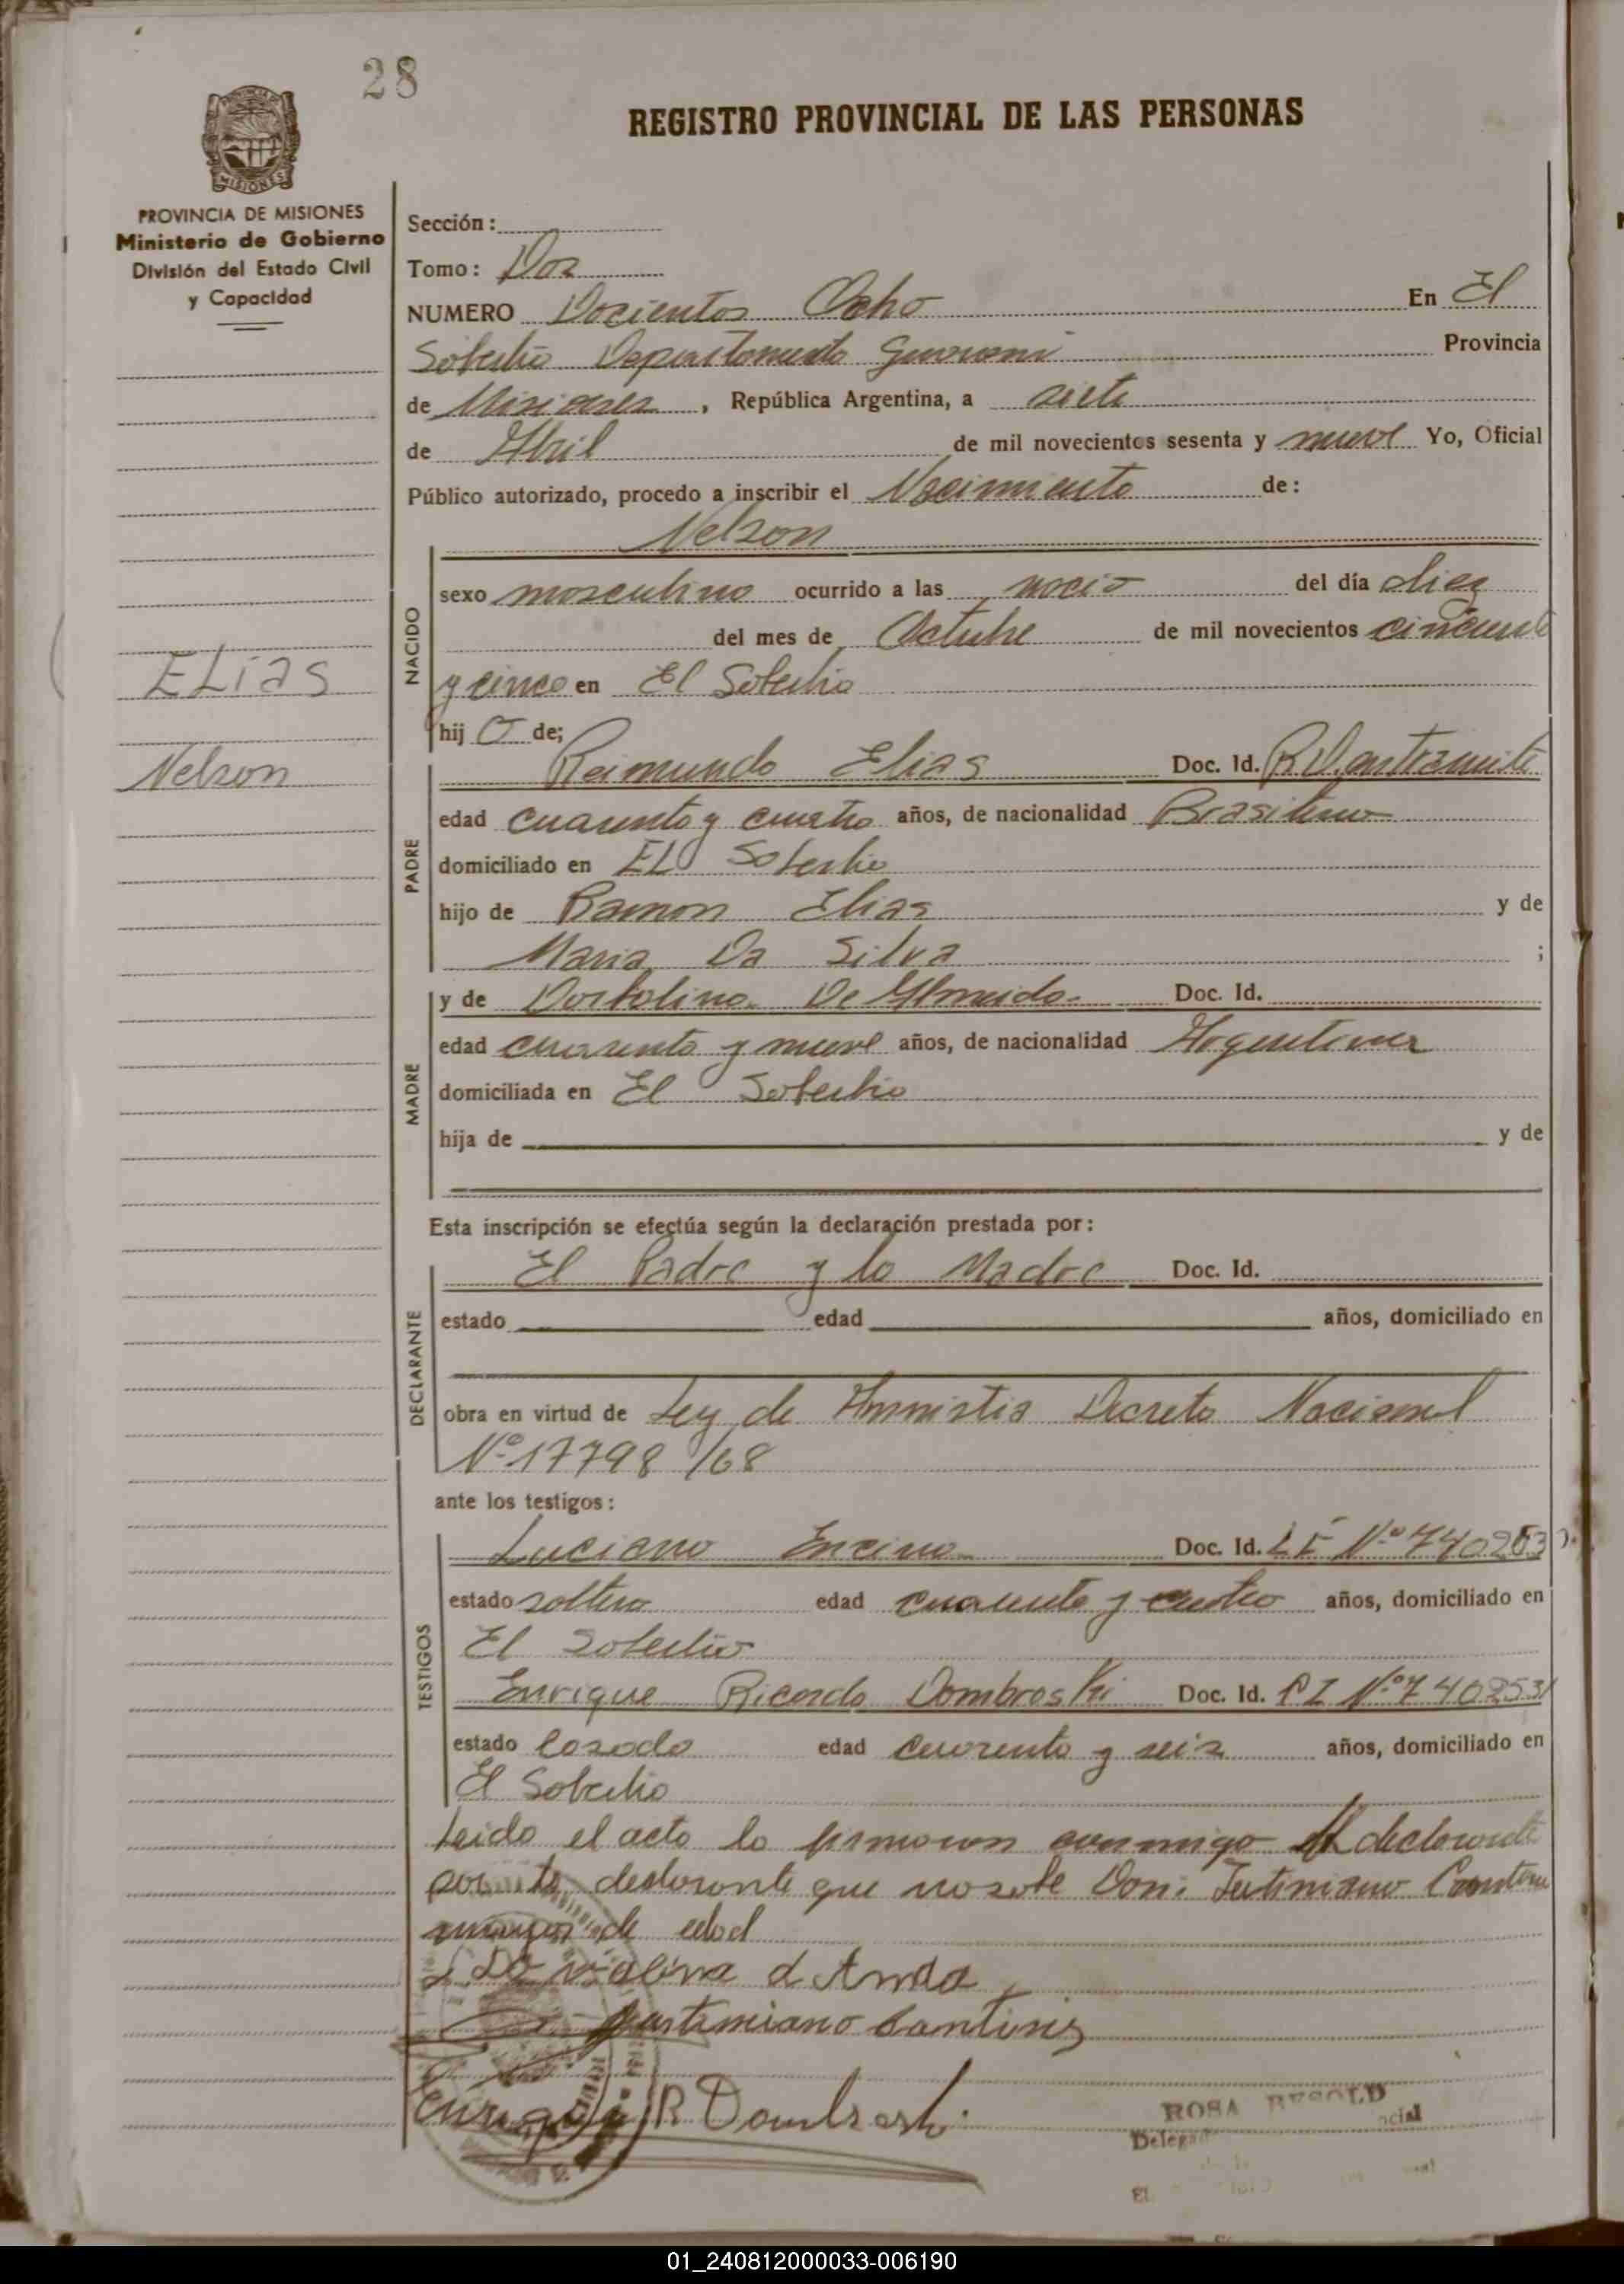 28
REGISTRO PROVINCIAL DE LAS PERSONAS
PROVINCIA DE MISIONES
MISIONES
PROVINCIA DE MISIONES
Ministerio de Gobierno
División del Estado Civil
y Capacidad
Sección:
Tomo: Dos
NUMERO Docientos Ocho En El
Soberbio Departamento Guarani Provincia
de Misiones, República Argentina, a siete
de Abril de mil novecientos sesenta y nueve Yo, Oficial
Público autorizado, procedo a inscribir el Nacimiento de:
Nelson
NACIDO
sexo masculino ocurrido a las del día diez
del mes de Octubre de mil novecientos cincuenta
y cinco en El Soberbio
hijo de;
ELias
Nelson
PADRE
Raimundo Elias Doc. Id.
edad cuarenta y cuatro años, de nacionalidad Brasilero
domiciliado en EL Soberbio
hijo de Ramon Elias y de
Maria Da Silva ;
MADRE
y de De Almeida Doc. Id.
edad cuarenta y nueve años, de nacionalidad Argentina
domiciliada en El Soberbio
hija de y de
Esta inscripción se efectúa según la declaración prestada por:
DECLARANTE
El Padre y la Madre Doc. Id.
estado edad años, domiciliado en
obra en virtud de Ley de Amnistia Decreto Nacional
Nº 17798/68
ante los testigos:
TESTIGOS
Luciano Encina Doc. Id. LE Nº
estado soltero edad cuarenta y cuatro años, domiciliado en
El Soberbio
Enrique Ricardo Dombroski Doc. Id. Nº 7402531
estado casado edad cuarenta y seis años, domiciliado en
El Soberbio
Leido el acta la firmaron conmigo declarante
por la declarante que no sabe Don:
mayor de edad
ROSA BESOLD
El
01_240812000033-006190